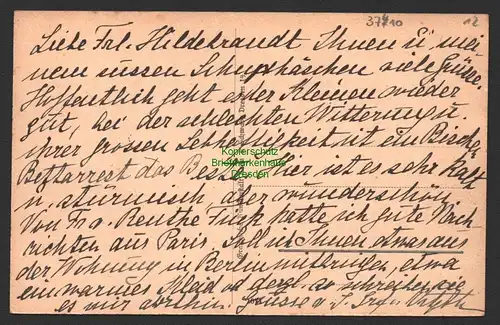 37710 12
Liebe Frl. Hildebrandt Ihnen u mei
nem süssen viele Grüsse.
Hoffentlich geht es der Kleinen wieder
gut, bei der schlechten Witterung u.
ihrer grossen ist ein Bischen
Bettarrest das Beste. Hier ist es sehr kalt
u. stürmisch, aber wunderschön
Von Fr. Benthe hatte ich gute Nach
richten aus Paris. Soll ich Ihnen etwas aus
der Wohnung in Berlin mitbringen, etwa
ein warmes Kleid od dergl. so schreiben sie
es mir dorthin. Grüsse
Kopierschutz
Briefmarkenhaus
Dresden